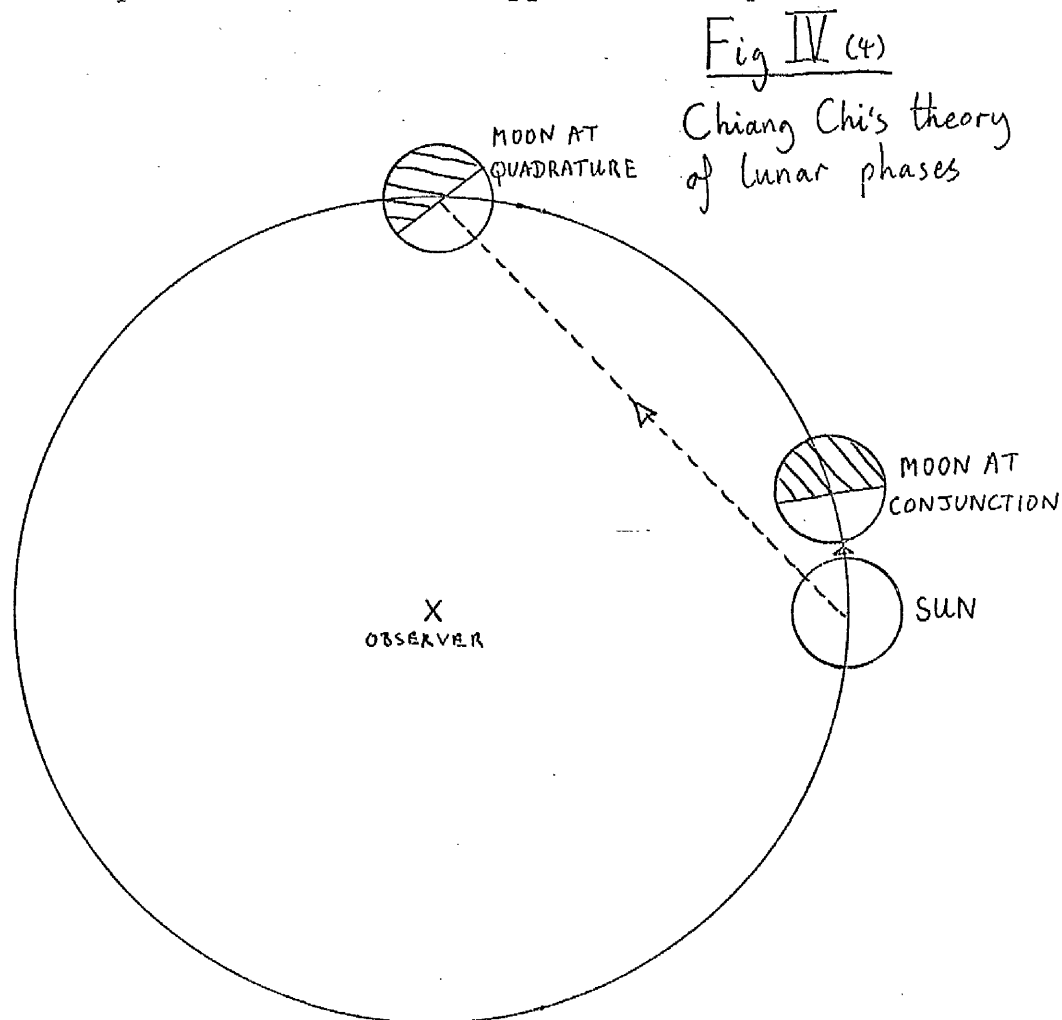 Fig IV (4)
Chiang Chi's theory
of lunar phases
MOON AT
QUADRATURE
MOON AT
CONJUNCTION
SUN
X
OBSERVER